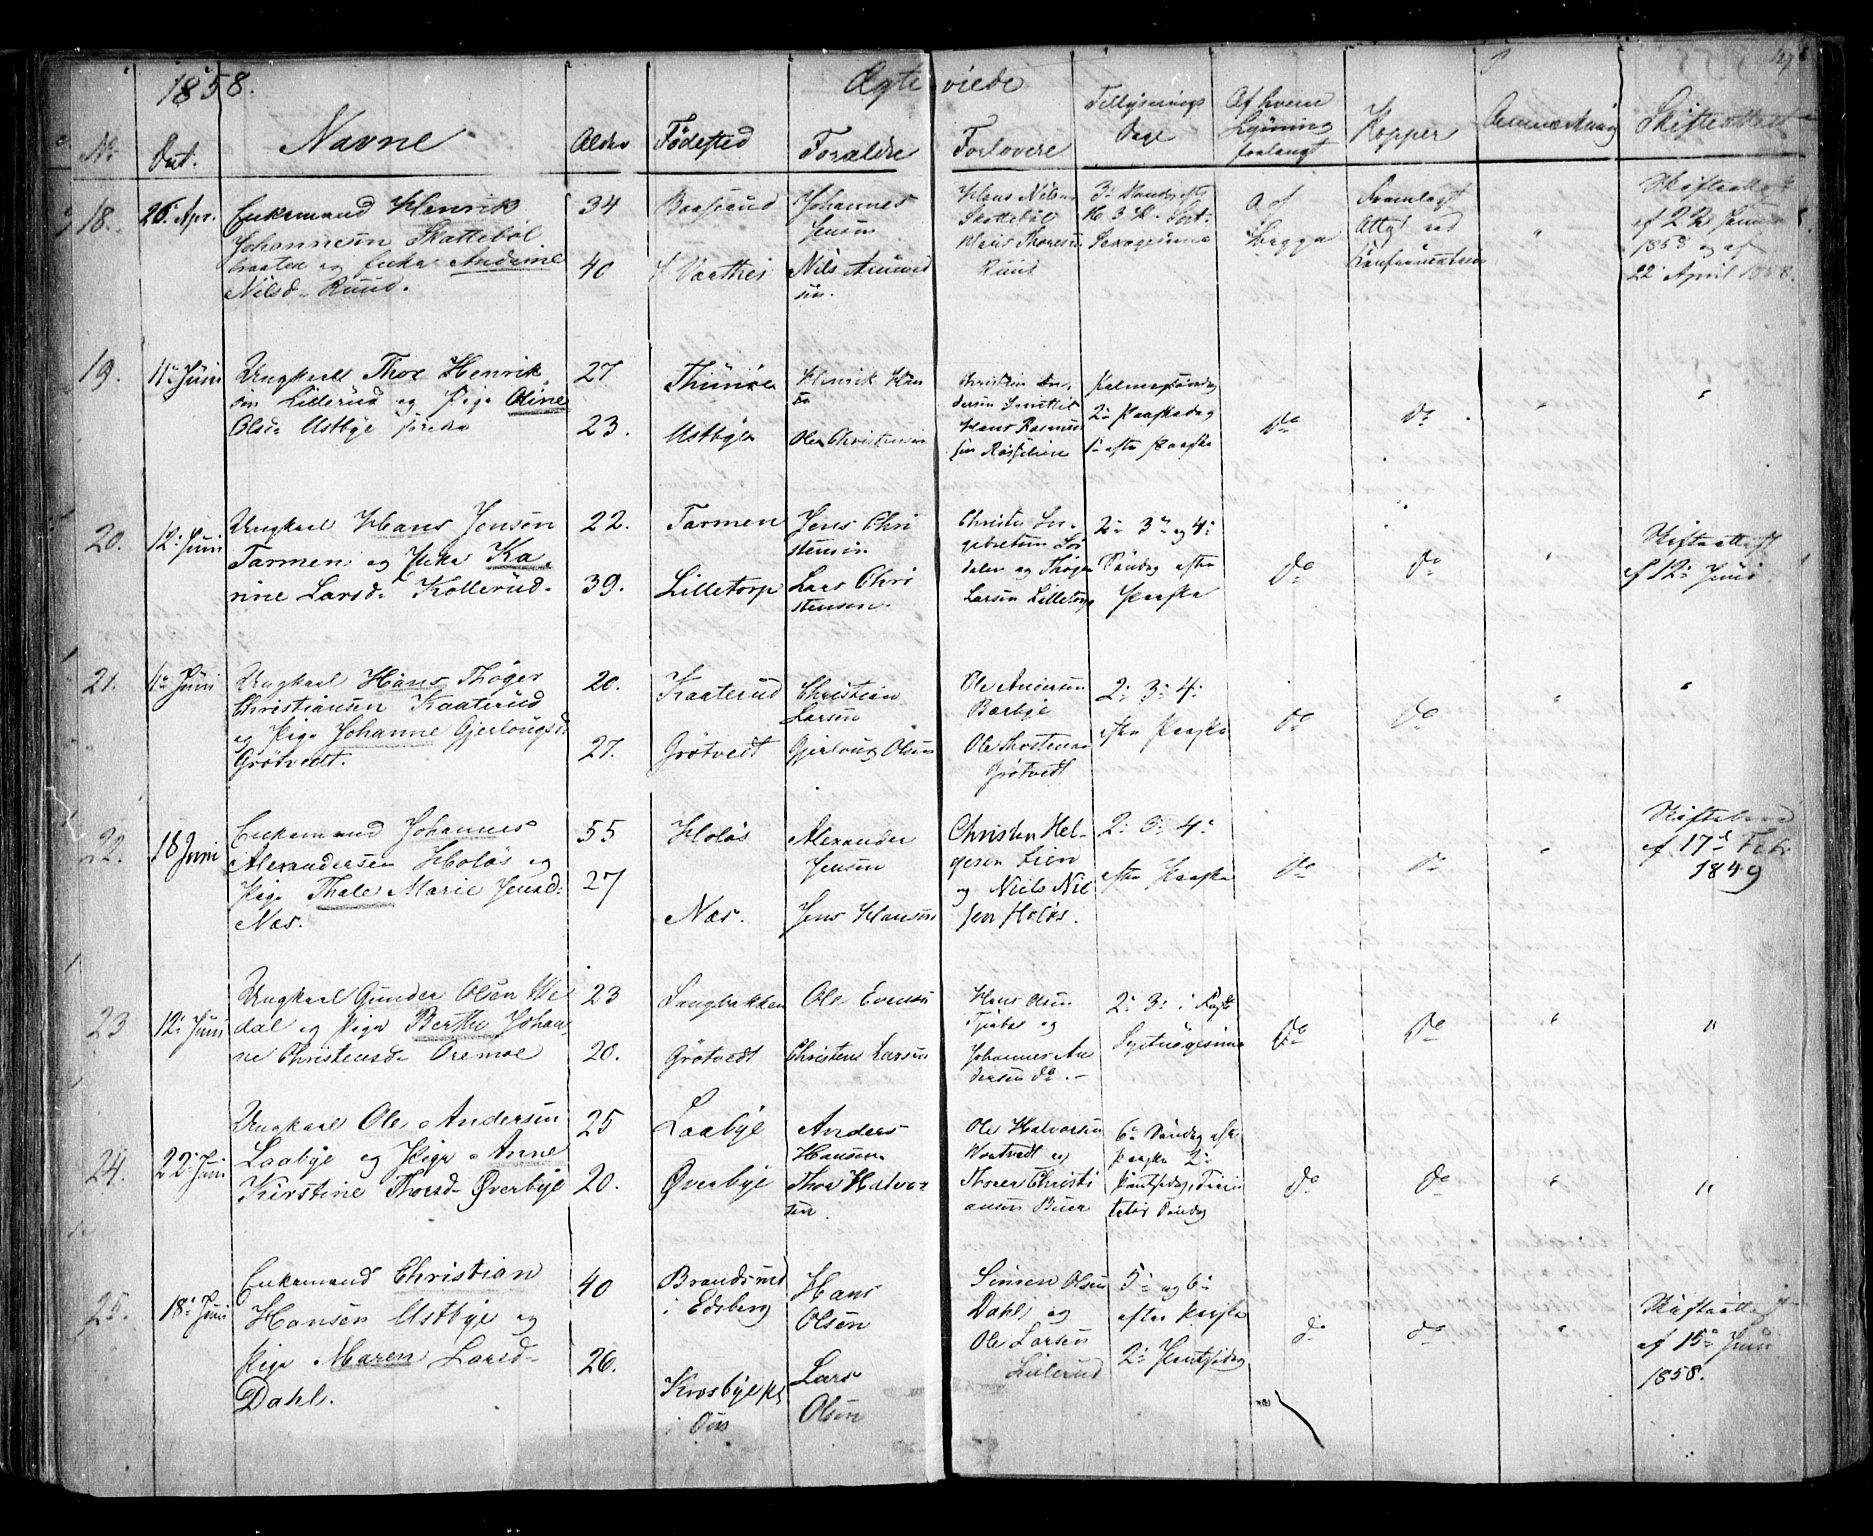 1858.
Ægteviede
No
Dat.
Navne
Alder
Fødested
Forældre
Forlovere
Tillysnings
Dage
Af hvem
Lysning
forlangt
Kopper
Anmærkning
Skifteattest
18.
26 Apr.
Enkemand Henrik
Johannesen Skattebøl
braaten og Enke Andrine
Nilsd. Ruud.
34
40
Johannes
Jensen
Nils Amund
sen.
Hans Nilsen
Skattebøl
Af
begge
Fremlagt
Attest ved
Confirmationen
"
Skifteattest
af 22 Januar
1858 og af
22 April 1858.
19.
11te Juni
Ungkarl Thor Henrik
sen Lillerud og Pige Oline
Olsd. Ustbye
27
23.
Ustbye
Henrik Han
sen
Ole Christensen
Hans Rasmus
sen
Palmesøndag
2den Paaskedag
1ste efter Paaske
do
do
"
"
20.
12te Juni
Ungkarl Hans Jensen
Tarmen og Pike Ka
rine Larsd. Kollerud.
22.
39.
Tarmen
Lilletorp
Jens Chri
stensen
Lars Chri
stensen.
Christen In
gebretsen
dalen og Thøger
Larsen Lilletorp
2den 3die og 4de
Søndag efter
Paaske
do
do
"
Skifteattest
af 12te Juni
21.
Juni
Ungkarl Hans Thøger
Christiansen Kaaterud
og Pige Johanne Gjerlougsd.
Grøtvedt.
20.
27.
Kaaterud
Grøtvedt
Christian
Larsen
Gjerloug Olsen
Ole Andersen
Bærbye
Ole Thostensen
Grøtvedt
2: 3: 4:
efter Paaske
do
do
"
"
22.
18 Juni
Enkemand Johannes
Alexandersen Holøs og
Pige Thale Marie Jensd.
Næs.
55
27
Holøs
Næs.
Alexander
Jensen
Jens Hansen
Christen Hel-
gesen Lien
og Niels Nil
sen Holøs.
2: 3: 4:
efter Paaske
do
do
"
af 17d Febr
1849
23
12te Juni
Ungkarl Gunder Olsen We
dal og Pige Berthe Johan-
ne Christensd. Oremoe
23
20.
Langbakken
Grøtvedt
Ole Evensen
Christen Larsen
Hans Olsen
og
Johannes An
dersen do. –
2: 3:
do
do
"
"
24.
22: Juni
Ungkarl Ole Andersen
Laabye og Pige Anne
Kirstine Thorsd. Øverbye
25
20.
Laabye
Øverbye
Anders
Hansen
Thor Halvor
sen.
Ole Halvorsen
og
Thorer Christi
ansen Buer
6te Søndag efter
Paaske 2den
Pintsedag, Trini
tatis Søndag
do
do
"
"
25.
18: Juni
Enkemand Christian
Hansen Ustbye og
Pige Maren Larsd.
Dahl.
40
26.
Brandsrud
i Edsberg
Krosbye
i Ous
Hans
Olsen
Lars
Olsen
Simen Olsen
Dahl og
Ole Larsen
Lillerud
5te og 6te
efter Paaske
2den Pintsedag
do
do
"
Skifteattest
af 15de Juni
1858.